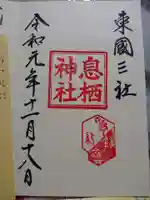 東國三社
息栖
神社
令和元年十一月十八日